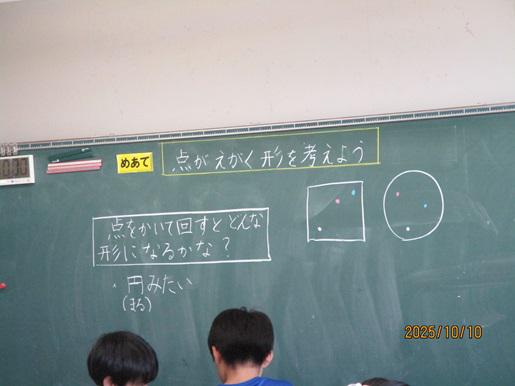 めあて
点がえがく形を考えよう
点をかいて回すとどんな
形になるかな？
・円みたい
(まる)
2025/10/10